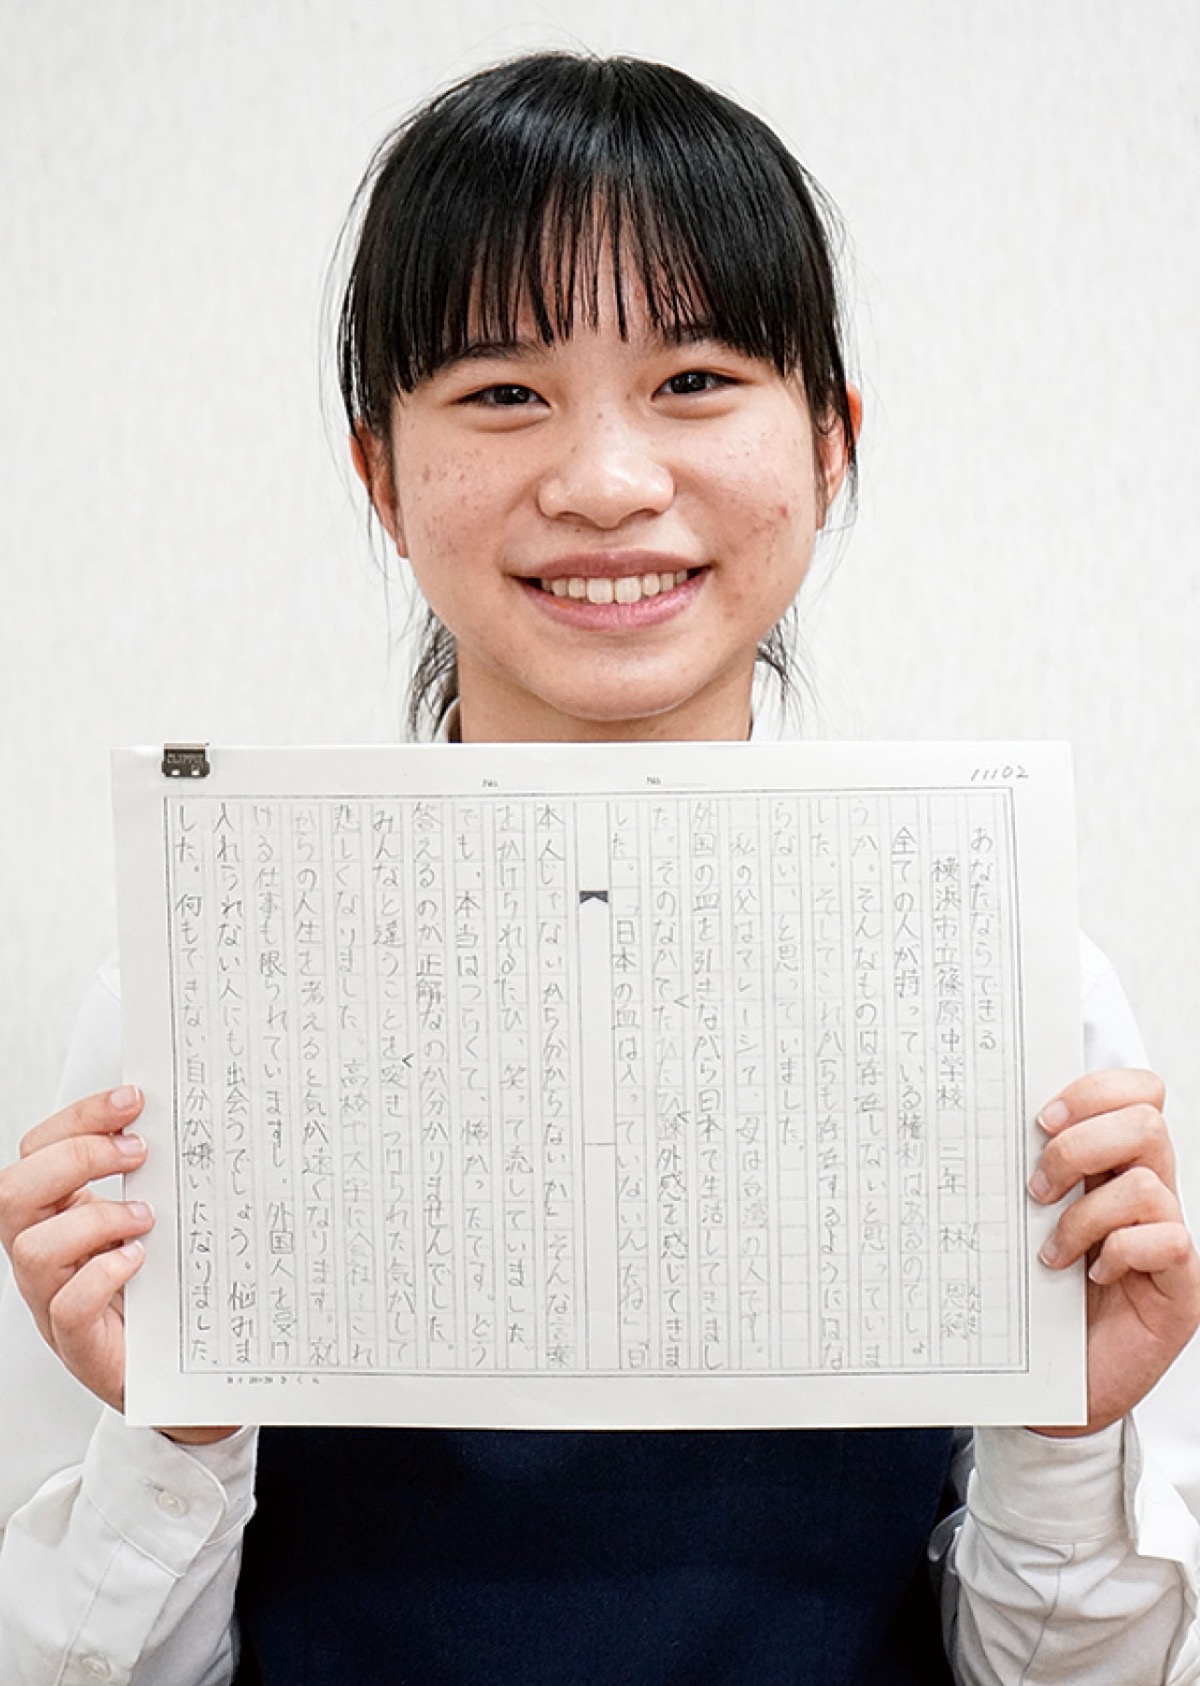 11102
No.
No.
あなたならできる
横浜市立篠原中学校 三年 林 恩綺
全ての人が持っている権利はあるのでしょ
うか。そんなものは存在しないと思っていま
した。そしてこれからも存在するようにはな
らない、と思っていました。
私の父はマレーシア、母は台湾の人です。
外国の血を引きながら日本で生活してきまし
た。そのなかでたびたび疎外感を感じてきま
した。「日本の血は入っていないんだね」「日
本人じゃないからわからないか」そんな言葉
をかけられるたび、笑って流していました。
でも、本当はつらくて、怖かったです。どう
答えるのが正解なのか分かりませんでした。
みんなと違うことを突きつけられた気がして
悲しくなりました。高校や大学に会社…これ
からの人生を考えると気が遠くなります。就
ける仕事も限られていますし、外国人を受け
入れられない人にも出会うでしょう。悩みま
した。何もできない自分が嫌いになりました。